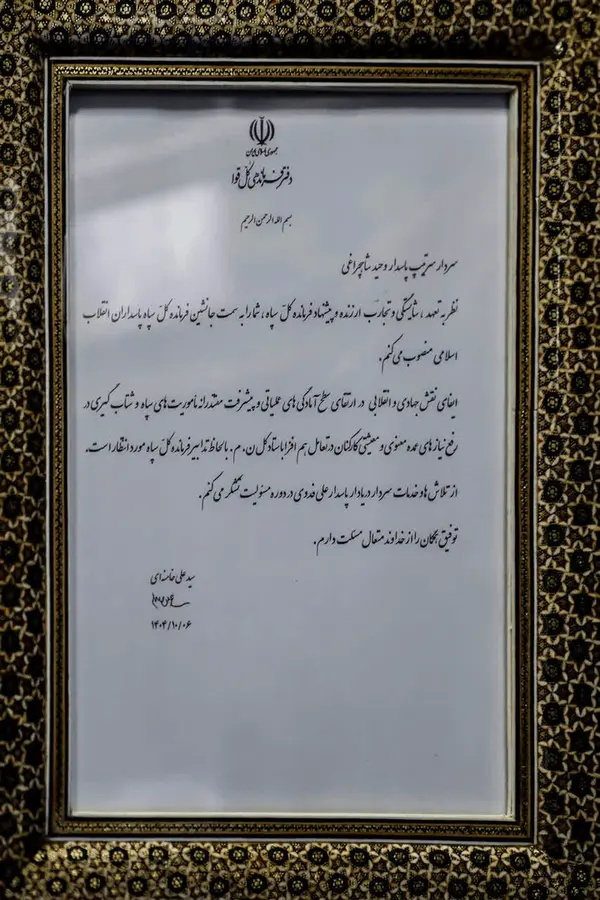 جمهوری اسلامی ایران
دفتر فرماندهی کل قوا
بسم الله الرحمن الرحیم
سردار سرتیپ پاسدار وحید شاهچراغی
نظر به تعهد، شایستگی و تجارب ارزنده و پیشنهاد فرمانده کلّ سپاه، شما را به سمت جانشین فرمانده کلّ سپاه پاسداران انقلاب
اسلامی منصوب می‌کنم.
ایفای نقش جهادی و انقلابی در ارتقای سطح آمادگی‌های عملیاتی و پیشرفت مقتدرانه مأموریت‌های سپاه و شتاب گیری در
رفع نیازهای عمده معنوی و معیشتی کارکنان در تعامل هم افزا با ستاد کل ن. م. با لحاظ تدابیر فرمانده کلّ سپاه مورد انتظار است.
از تلاش‌ها و خدمات سردار دریادار پاسدار علی فدوی در دوره مسئولیت تشکّر می‌کنم.
توفیق همگان را از خداوند متعال مسئلت دارم.
سید علی خامنه‌ای
۱۴۰۴/۱۰/۰۶